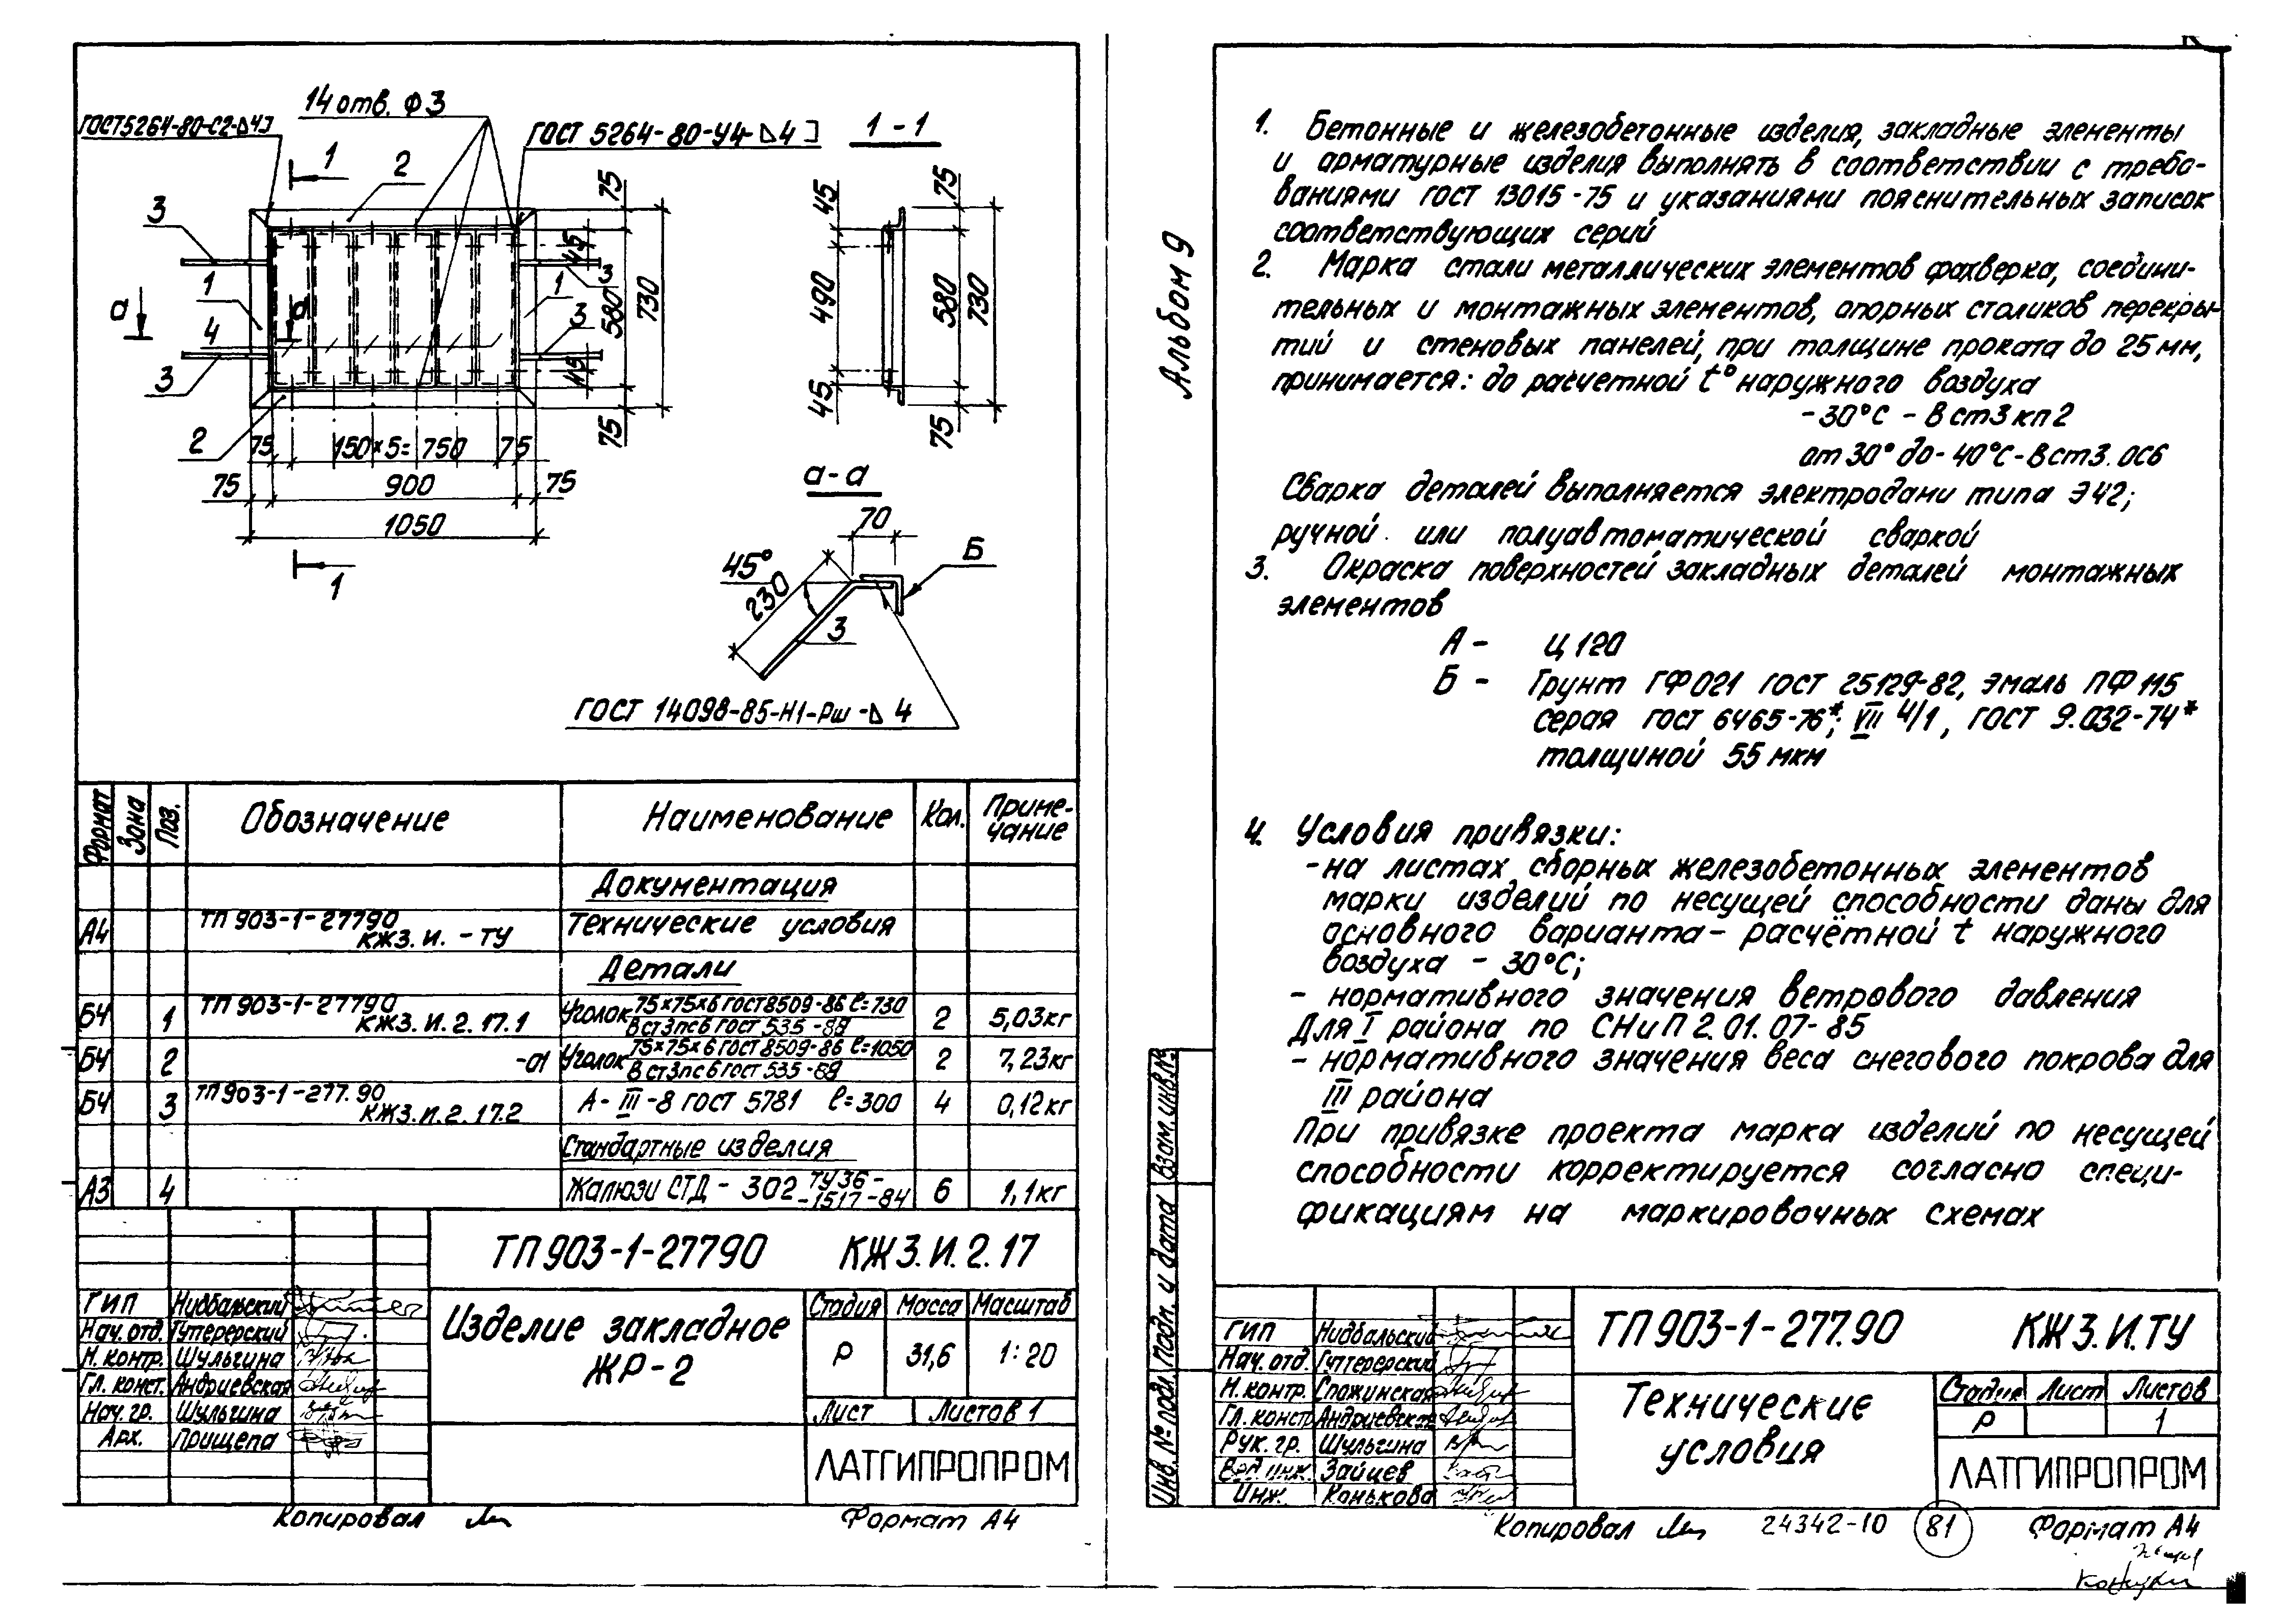 14 отв. ф3
ГОСТ5264-80-С2-⊿4
ГОСТ 5264-80-У4-⊿4
1-1
1
2
3
1
а
4
3
2
3
1
3
а
45
45
75
580
730
75
75
150×5=750
75
75
900
75
1050
1
45
490
45
75
580
730
75
а-а
70
45°
230
Б
3
ГОСТ 14098-85-Н1-Рш-⊿ 4
Формат
Зона
Поз.
Обозначение
Наименование
Кол.
Приме-
чание
Документация
А4 ТП 903-1-27790
КЖ3.И. - ТУ
Технические условия
Детали
БЧ 1 ТП 903-1-27790
КЖ3.И.2.17.1
Уголок 75×75×6 ГОСТ8509-86 ℓ=730
Вст3пс6 ГОСТ 535-88
2 5,03кг
БЧ 2 -01 Уголок 75×75×6 ГОСТ 8509-86 ℓ=1050
Вст3пс6 ГОСТ 535-88
2 7,23кг
БЧ 3 ТП903-1-277.90
КЖ3.И.2.17.2
А-III-8 ГОСТ 5781 ℓ=300 4 0,12кг
Стандартные изделия
А3 4 Жалюзи СТД-302 ТУ36-
-1517-84
6 1,1кг
ТП903-1-27790 КЖ3.И.2.17
Изделие закладное
ЖР-2
Стадия Масса Масштаб
Р 31,6 1:20
Лист Листов 1
ЛАТГИПРОПРОМ
ГИП Нидбальский
Нач.отд. Гутерерский
Н.контр. Шульгина
Гл.конст. Андриевская
Нач.гр. Шульгина
Арх. Прищепа
Копировал
Формат А4
Альбом 9
1. Бетонные и железобетонные изделия, закладные элементы
и арматурные изделия выполнять в соответствии с требо-
ваниями ГОСТ 13015-75 и указаниями пояснительных записок
соответствующих серий
2. Марка стали металлических элементов фахверка, соедини-
тельных и монтажных элементов, опорных столиков перекры-
тий и стеновых панелей, при толщине проката до 25мм,
принимается: до расчетной t° наружного воздуха
-30°С - Вст3кп2
от 30° до-40°С-Вст3.ПС6
Сварка деталей выполняется электродами типа Э42;
ручной или полуавтоматической сваркой
3. Окраска поверхностей закладных деталей монтажных
элементов
А - Ц 120
Б - Грунт ГФ021 ГОСТ 25129-82, эмаль ПФ115
серая ГОСТ 6465-76*; VII 4/1, ГОСТ 9.032-74*
толщиной 55 мкм
4. Условия привязки:
-на листах сборных железобетонных элементов
марки изделий по несущей способности даны для
основного варианта- расчётной t наружного
воздуха - 30°С;
- нормативного значения ветрового давления
Для I района по СНиП 2.01.07-85
- нормативного значения веса снегового покрова для
III района
При привязке проекта марка изделий по несущей
способности корректируется согласно специ-
фикациям на маркировочных схемах
Взам.инв.№
Подп. и дата
Инв.№ подл.
ТП903-1-277.90 КЖ3.И.ТУ
Технические
условия
Стадия Лист Листов
Р 1
ЛАТГИПРОПРОМ
ГИП Нидбальский
Нач.отд. Гутерерский
Н.контр. Спожинская
Гл.констр Андриевская
Рук.гр. Шульгина
Вед.инж. Зайцев
Инж. Конькова
Копировал
24342-10
81
Формат А4